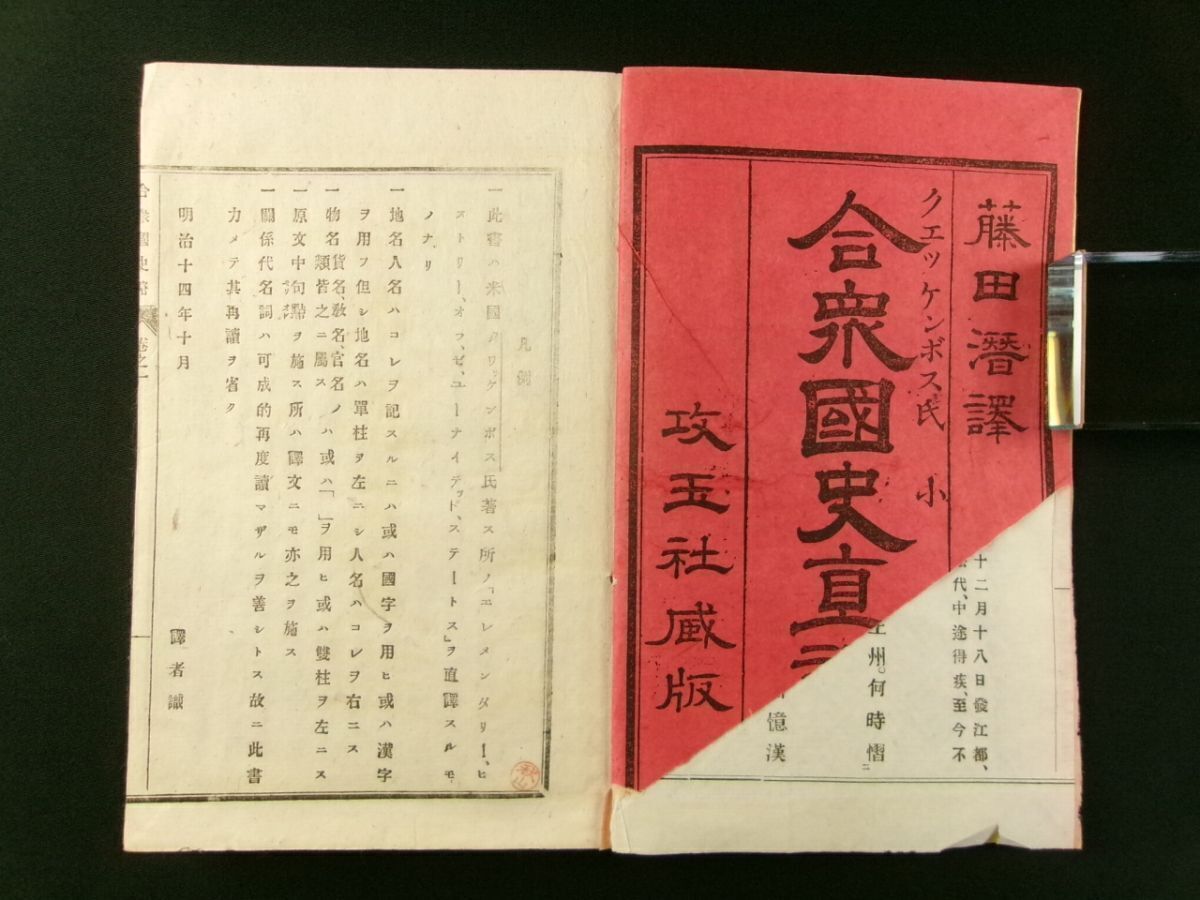 藤田潛譯
クエッケンボス氏 小
合衆國史直
攻玉社蔵版
十二月十八日發江都、
代、中途得疾、至今不
州。何時慴
憶漢
凡例
一此書ハ米國クワッケンボス氏著ス所ノ「エレメンダリー、ヒ
ストリー、オフ、ゼ、ユーナイテッド、ステートス」ヲ直譯スルモ
ノナリ
一地名人名ハコレヲ記スルニハ或ハ國字ヲ用ヒ或ハ漢字
ヲ用フ但シ地名ハ單柱ヲ左ニシ人名ハコレヲ右ニス
一物名貨名、敎名、官名ノ類皆之ニ屬スハ或ハ「」ヲ用ヒ或ハ雙柱ヲ左ニス
一原文中句點ヲ施ス所ハ譯文ニモ亦之ヲ施ス
一關係代名詞ハ可成的再度讀マザルヲ善シトス故ニ此書
力メテ其再讀ヲ省ク
明治十四年十月
譯者識